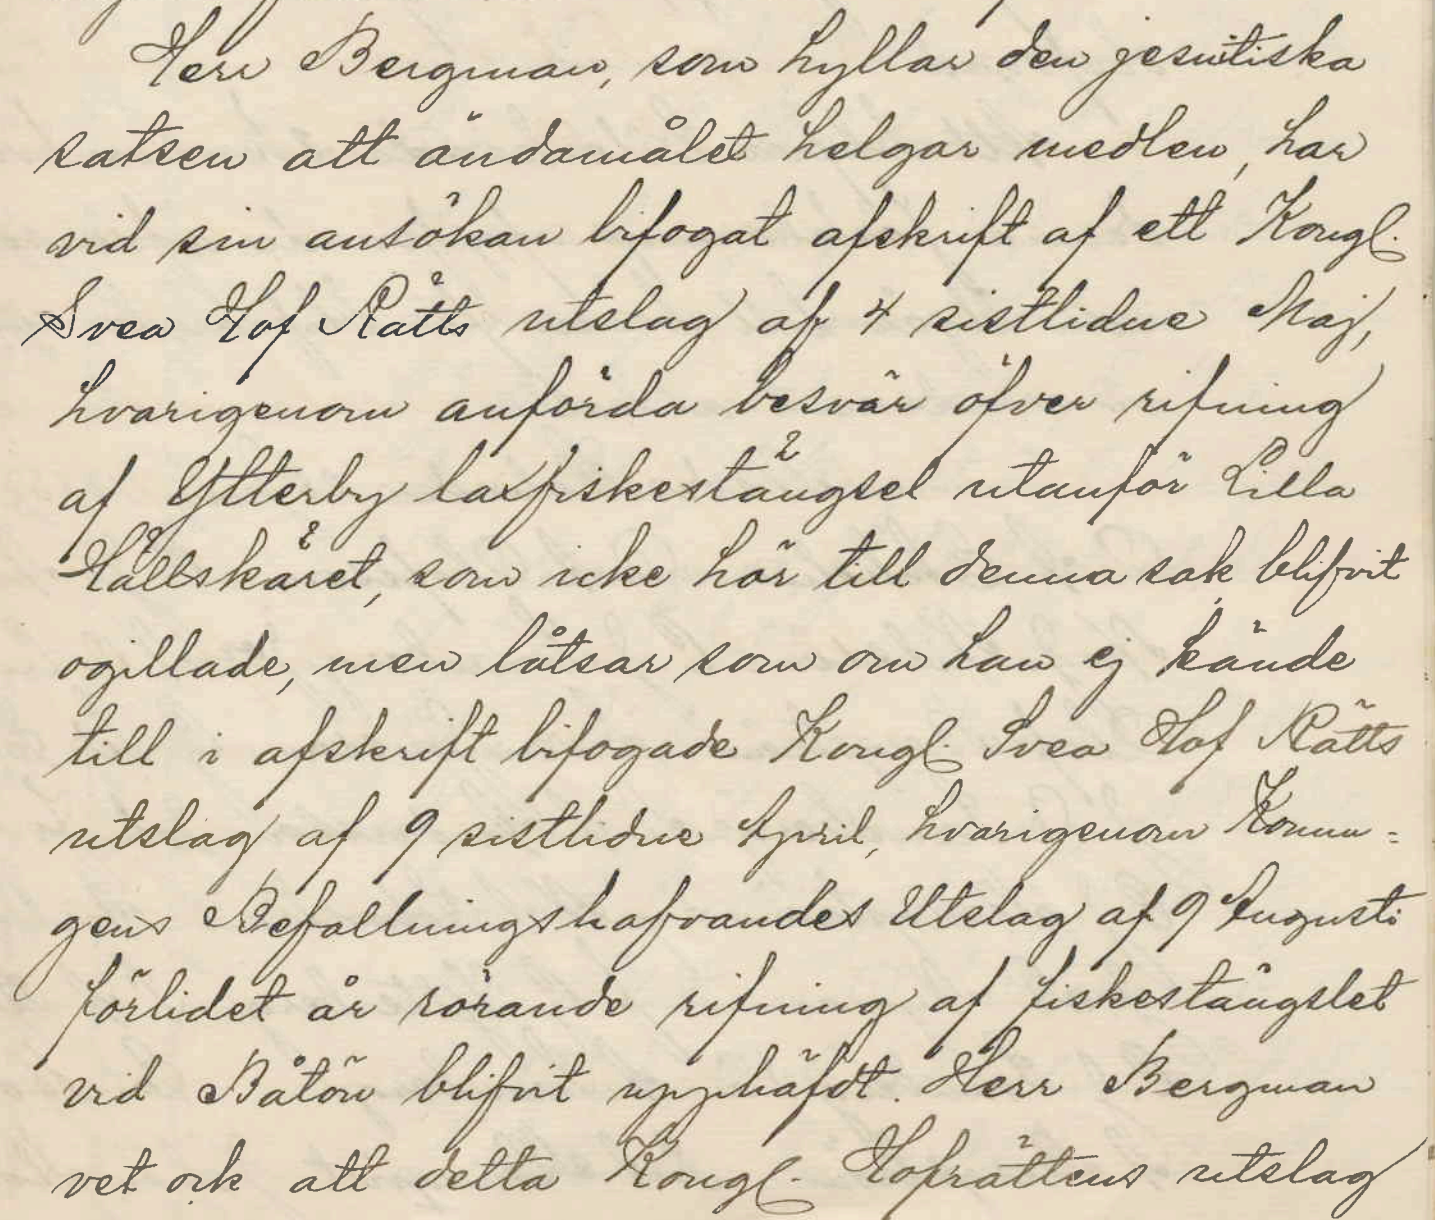 Herr Bergman, som hyllar den jesuitiska
satsen att ändamålet helgar medlen, har
vid sin ansökan bifogat afskrift af ett Kongl.
Svea Hof Rätts utslag af 4 sistlidne Maj,
hvarigenom anförda besvär öfver rifning
af Ytterby laxfiskestängsel utanför Lilla
Hällskäret, som icke hör till denna sak, blifvit
ogillade, men låtsar som om han ej kände
till i afskrift bifogade Kongl. Svea Hof Rätts
utslag af 9 sistlidne April, hvarigenom Konun=
gens Befallningshafvandes Utslag af 9 Augusti
förlidet år rörande rifning af fiskestängslet
vid Båtön blifvit upphäfdt. Herr Bergman
vet ock att detta Kongl. Hofrättens utslag